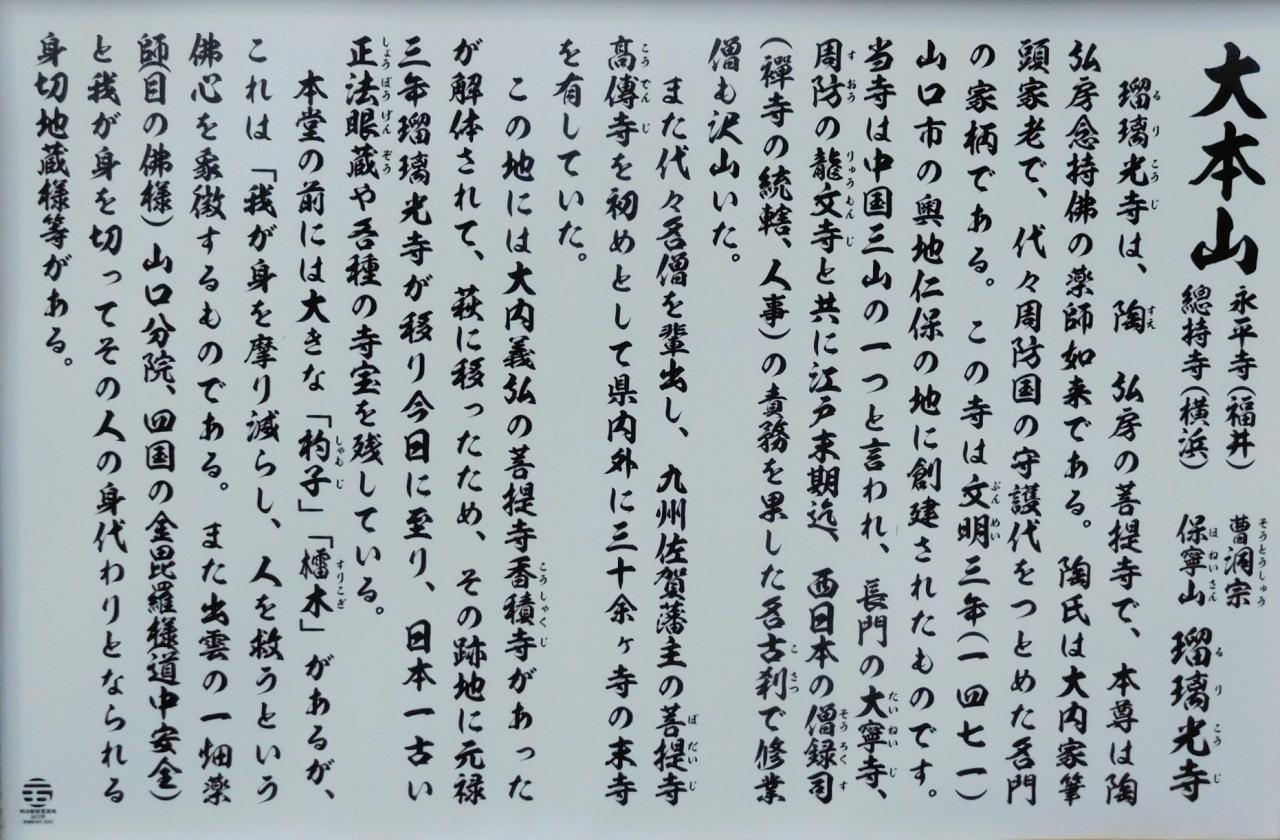 大本山 永平寺(福井) 曹洞宗
總持寺(横浜) 保寧山 瑠璃光寺
瑠璃光寺は、陶 弘房の菩提寺で、本尊は陶
弘房念持佛の薬師如来である。陶氏は大内家筆
頭家老で、代々周防国の守護代をつとめた名門
の家柄である。この寺は文明三年(一四七一)
山口市の奥地仁保の地に創建されたものです。
当寺は中国三山の一つと言われ、長門の大寧寺、
周防の龍文寺と共に江戸末期迄、西日本の僧録司
(禅寺の統轄、人事)の責務を果した名古刹で修業
僧も沢山いた。
また代々名僧を輩出し、九州佐賀藩主の菩提寺
高傳寺を初めとして県内外に三十余ヶ寺の末寺
を有していた。
この地には大内義弘の菩提寺香積寺があった
が解体されて、萩に移ったため、その跡地に元禄
三年瑠璃光寺が移り今日に至り、日本一古い
正法眼蔵や各種の寺宝を残している。
本堂の前には大きな「杓子」「櫺木」があるが、
これは「我が身を摩り減らし、人を救うという
佛心を象徴するものである。また出雲の一畑薬
師(目の佛様)山口分院、四国の金毘羅様道中安全)
と我が身を切ってその人の身代わりとなられる
身切地蔵様等がある。